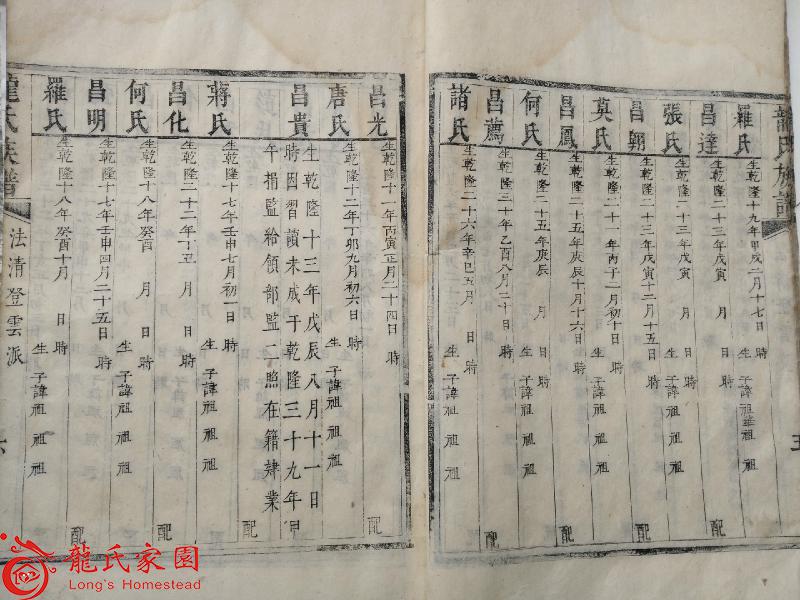 龍氏族譜
羅氏 生乾隆十九年甲戌二月十七日 時 生 子諱祖華祖祖
昌達 生乾隆二十三年戊寅 月 日 時 配
張氏 生乾隆二十三年戊寅 月 日 時 生 子諱祖 祖 祖
昌翱 生乾隆二十三年戊寅十二月十五 時 配
莫氏 生乾隆二十一年丙子二月初十日 時 生 子諱祖 祖 祖
昌鳳 生乾隆二十五年庚辰十月十六日 時 配
何氏 生乾隆二十五年庚辰 月 日 時 生 子諱祖 祖 祖
昌薦 生乾隆三十年乙酉八月二十日 時 配
諸氏 生乾隆二十六年辛巳五月 日 時 生 子諱祖 祖 祖
五
昌光 生乾隆十一年丙寅正月二十四日 時 配
唐氏 生乾隆十二年丁卯九月初六日 時 生 子諱祖 祖 祖
昌貴 生乾隆十三年戊辰八月十一日
時因習讀未成于乾隆三十九年甲
午捐監給領部監二照在籍肄業
配
蔣氏 生乾隆十七年壬申七月初一日 時 生 子諱祖 祖 祖
昌化 生乾隆二十二年丁丑 月 日 時 配
何氏 生乾隆十八年癸酉 月 日 時 生 子諱祖 祖 祖
昌明 生乾隆十七年壬申四月二十五日 時 配
羅氏 生乾隆十八年癸酉十月 日 時 生 子諱祖 祖 祖
龍氏族譜
法清登雲派
六
龍氏家園
Long's Homestead